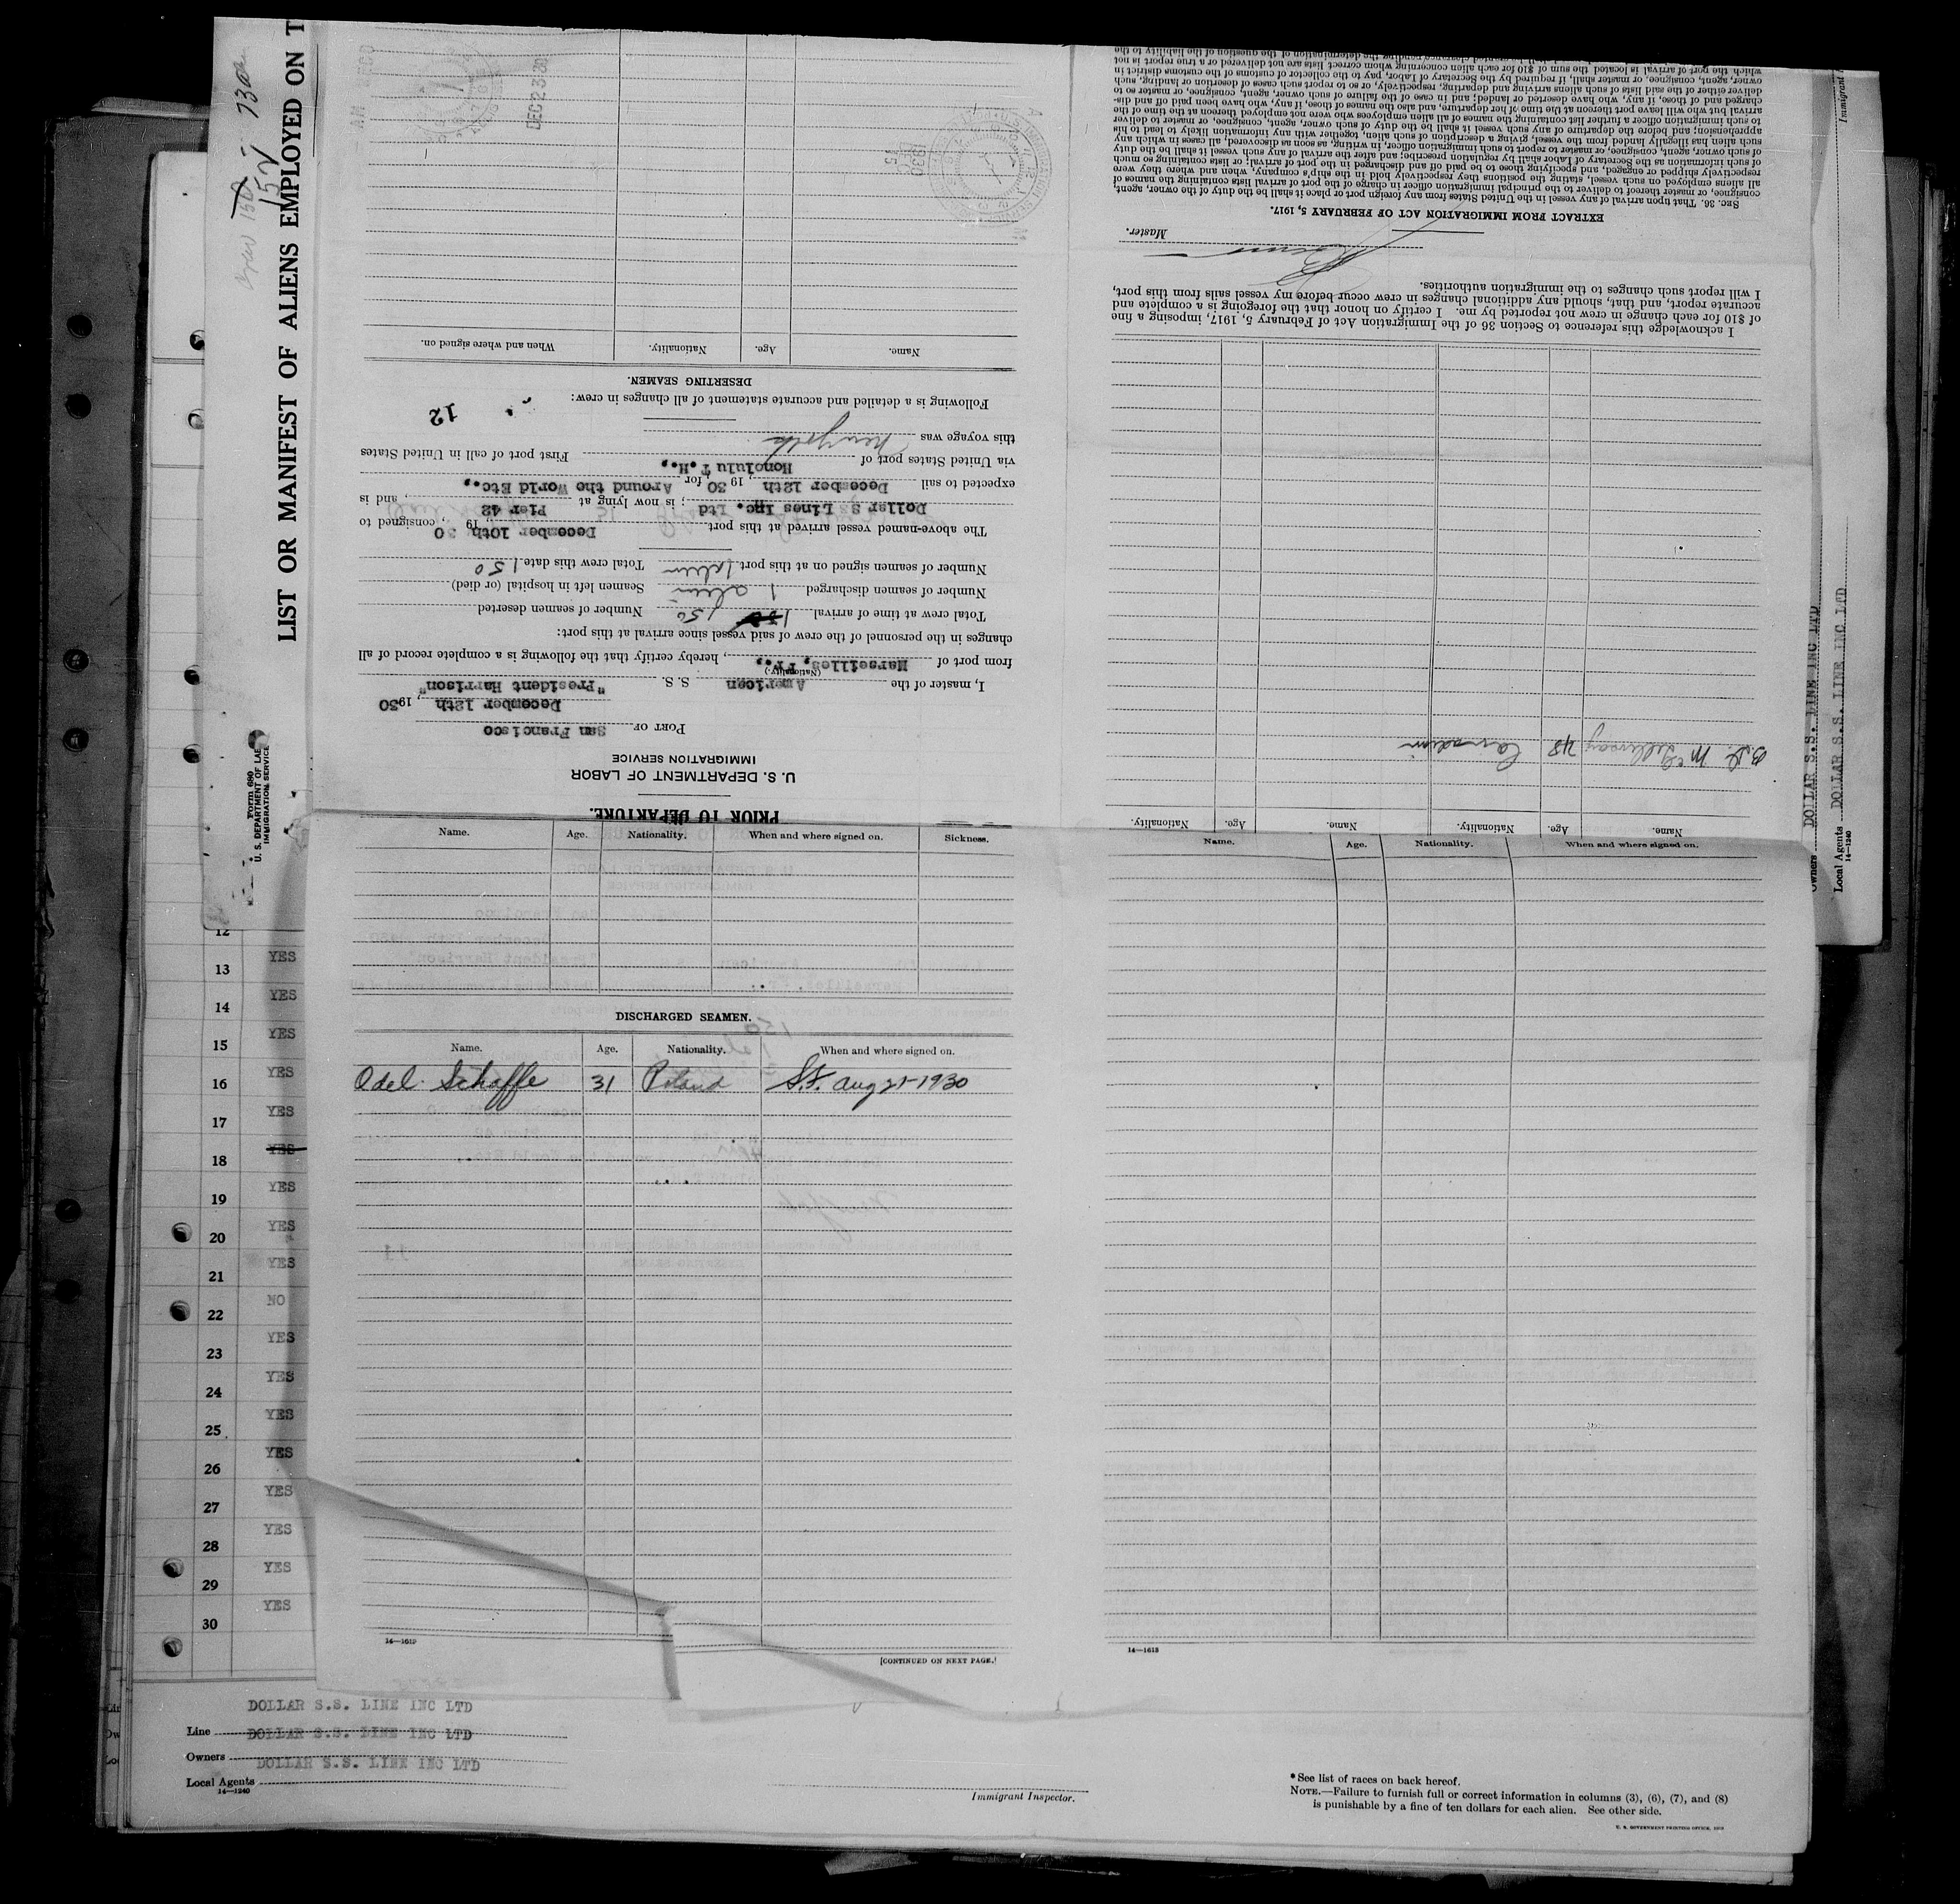 LIST OR MANIFEST OF ALIENS EMPLOYED ON T
Form 680
U. S. DEPARTMENT OF LAB
IMMIGRATION SERVICE
PRIOR TO DEPARTURE.
U. S. DEPARTMENT OF LABOR
IMMIGRATION SERVICE
PORT OF San Francisco
December 12th, 1930
I, master of the American S. S. "President Harrison"
(Nationality)
from port of Marseilles, Fr., hereby certify that the following is a complete record of all
changes in the personnel of the crew of said vessel since arrival at this port:
Total crew at time of arrival 150 Number of seamen deserted
Number of seamen discharged 1 alien Seamen left in hospital (or died)
Number of seamen signed on at this port 1 alien Total crew this date 150
The above-named vessel arrived at this port December 10th, 1930, consigned to
Dollar S S Lines Inc. Ltd; is now lying at Pier 42, and is
expected to sail December 12th, 1930 for Around the World Etc.,
via United States port of Honolulu T.H., First port of call in United States
this voyage was New York
12
Following is a detailed and accurate statement of all changes in crew:
DESERTING SEAMEN.
Name. Age. Nationality. When and where signed on.
DEC 23 30
Name. Age. Nationality. Name. Age. Nationality.
48 Canadian
I acknowledge this reference to Section 36 of the Immigration Act of February 5, 1917, imposing a fine
of $10 for each change in crew not reported by me. I certify on honor that the foregoing is a complete and
accurate report, and that, should any additional changes in crew occur before my vessel sails from this port,
I will report such changes to the immigration authorities.
Master.
EXTRACT FROM IMMIGRATION ACT OF FEBRUARY 5, 1917.
SEC. 36. That upon arrival of any vessel in the United States from any foreign port or place it shall be the duty of the owner, agent,
consignee, or master thereof to deliver to the principal immigration officer in charge of the port of arrival lists containing the names of
all aliens employed on such vessel, stating the positions they respectively hold in the ship's company, when and where they were
respectively shipped or engaged, and specifying those to be paid off and discharged in the port of arrival; or lists containing so much
of such information as the Secretary of Labor shall by regulation prescribe; and after the arrival of any such vessel it shall be the duty
of such owner, agent, consignee, or master to report to such immigration officer, in writing, as soon as discovered, all cases in which any
such alien has illegally landed from the vessel, giving a description of such alien, together with any information likely to lead to his
apprehension; and before the departure of any such vessel it shall be the duty of such owner, agent, consignee, or master to deliver
to such immigration officer a further list containing the names of all alien employees who were not employed thereon at the time of the
arrival but who will leave port thereon at the time of her departure, and also the names of those, if any, who have been paid off and dis-
charged and of those, if any, who have deserted or landed; and in case of the failure of such owner, agent, consignee, or master so to
deliver either of the said lists of such aliens arriving and departing, respectively, or so to report such cases of desertion or landing, such
owner, agent, consignee, or master, shall, if required by the Secretary of Labor, pay to the collector of customs of the customs district in
which the port of arrival is located the sum of $10 for each alien concerning whom correct lists are not delivered or a true report is not
Owners DOLLAR S.S. LINE INC LTD
Local Agents DOLLAR S.S. LINE INC LTD
14—1240
Name. Age. Nationality. When and where signed on. Sickness.
DISCHARGED SEAMEN.
Name. Age. Nationality. When and where signed on.
Odel Schaffe 31 Poland S.F. Aug 21-1930
14—1613
[CONTINUED ON NEXT PAGE.]
Name. Age. Nationality. When and where signed on.
14—1613
12
13 YES
14 YES
15 YES
16 YES
17 YES
18 YES
19 YES
20 YES
21 YES
22 NO
23 YES
24 YES
25 YES
26 YES
27 YES
28 YES
29 YES
30 YES
DOLLAR S.S. LINE INC LTD
Line DOLLAR S.S. LINE INC LTD
Owners DOLLAR S.S. LINE INC LTD
Local Agents
14—1240
Immigrant Inspector.
*See list of races on back hereof.
NOTE.—Failure to furnish full or correct information in columns (3), (6), (7), and (8)
is punishable by a fine of ten dollars for each alien. See other side.
U. S. GOVERNMENT PRINTING OFFICE